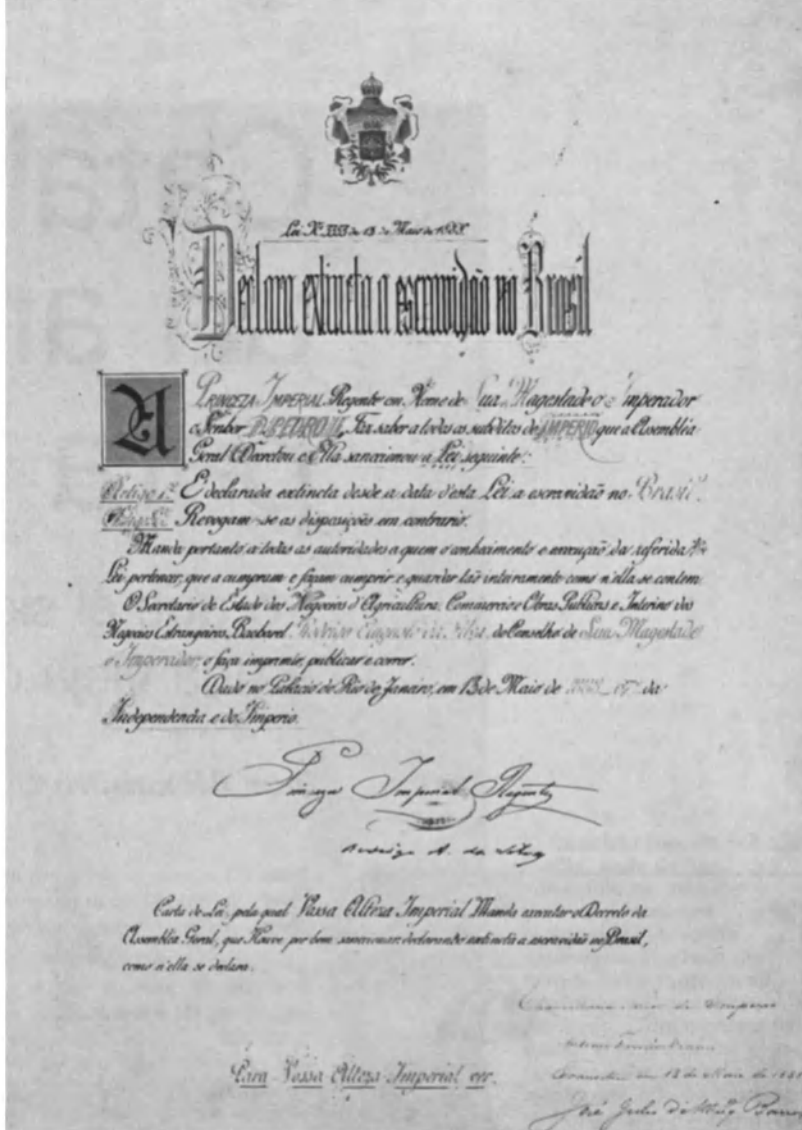 Lei Nº 3353 de 13 de Maio de 1888
Declara extincta a escravidão no Brasil
A PRINCEZA IMPERIAL Regente em Nome de Sua Magestade o Imperador
o Senhor D. PEDRO II, Faz saber a todos os subditos do IMPERIO que a Assembléa
Geral Decretou e Ella sanccionou a Lei seguinte:
Artigo 1º É declarada extincta desde a data d'esta Lei a escravidão no Brasil.
Artigo 2º Revogam-se as disposições em contrario.
Manda portanto a todas as autoridades a quem o conhecimento e execução da referida
Lei pertencer, que a cumpram e façam cumprir e guardar tão inteiramente como n'ella se contem.
O Secretario de Estado dos Negocios d'Agricultura, Commercio e Obras Publicas e Interino dos
Negocios Estrangeiros, Bacharel Rodrigo Augusto da Silva, do Conselho de Sua Magestade
o Imperador, o faça imprimir, publicar e correr.
Dado no Palacio do Rio de Janeiro, em 13 de Maio de da
Independencia e do Imperio.
Princeza Imperial Regente
Rodrigo A. da Silva
Carta de Lei, pela qual Vossa Alteza Imperial Manda executar o Decreto da
Assembléa Geral, que Houve por bem sanccionar declarando extincta a escravidão no Brasil,
como n'ella se declara.
Chancellaria-mór do Imperio
Para Vossa Alteza Imperial ver.
em 13 de Maio de
José Julio de Barros